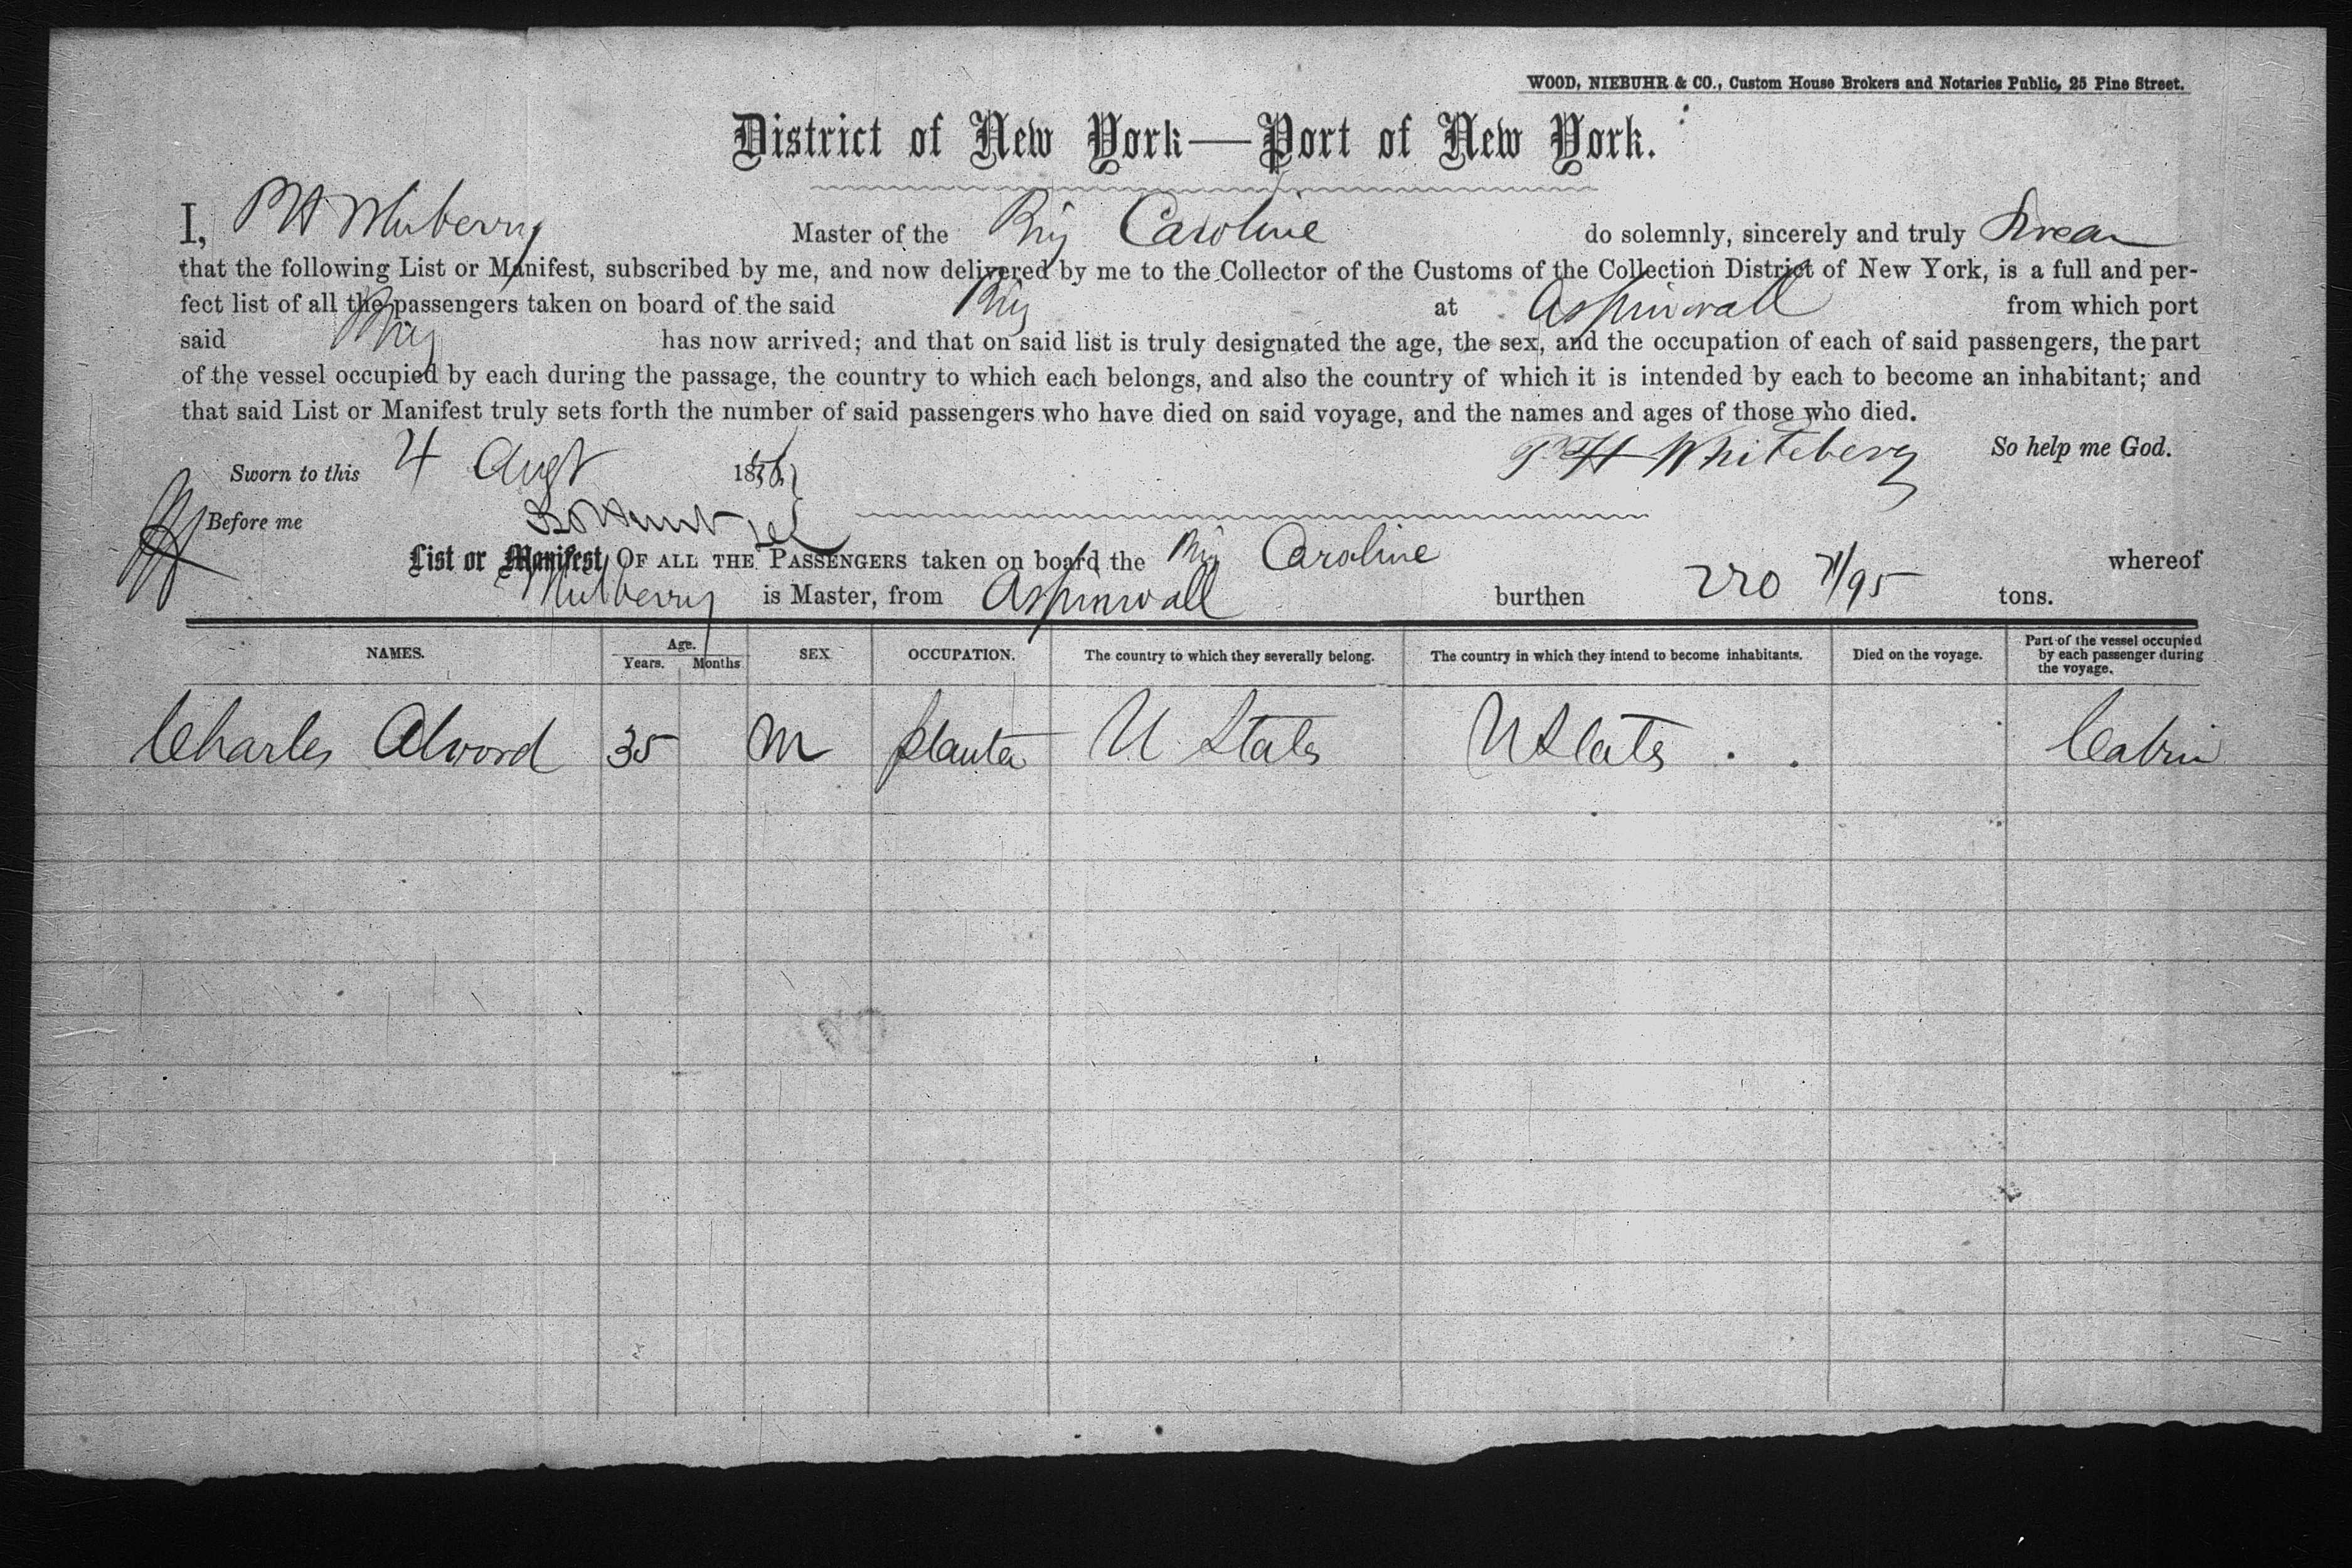 WOOD, NIEBUHR & CO., Custom House Brokers and Notaries Public, 25 Pine Street.
District of New York—Port of New York.
I, Master of the Brig Caroline do solemnly, sincerely and truly Swear
that the following List or Manifest, subscribed by me, and now delivered by me to the Collector of the Customs of the Collection District of New York, is a full and per-
fect list of all the passengers taken on board of the said Brig at Aspinwall from which port
said Brig has now arrived; and that on said list is truly designated the age, the sex, and the occupation of each of said passengers, the part
of the vessel occupied by each during the passage, the country to which each belongs, and also the country of which it is intended by each to become an inhabitant; and
that said List or Manifest truly sets forth the number of said passengers who have died on said voyage, and the names and ages of those who died.
Sworn to this 4 Augt 18 Whiteberg So help me God.
Before me
List or Manifest OF ALL THE PASSENGERS taken on board the Brig Caroline whereof
Mulberry is Master, from Aspinwall burthen 220 71/95 tons.
NAMES. Age. Years. Months SEX OCCUPATION. The country to which they severally belong. The country in which they intend to become inhabitants. Died on the voyage. Part of the vessel occupied by each passenger during the voyage.
Charles Alvord 35 M planter U States U States Cabin